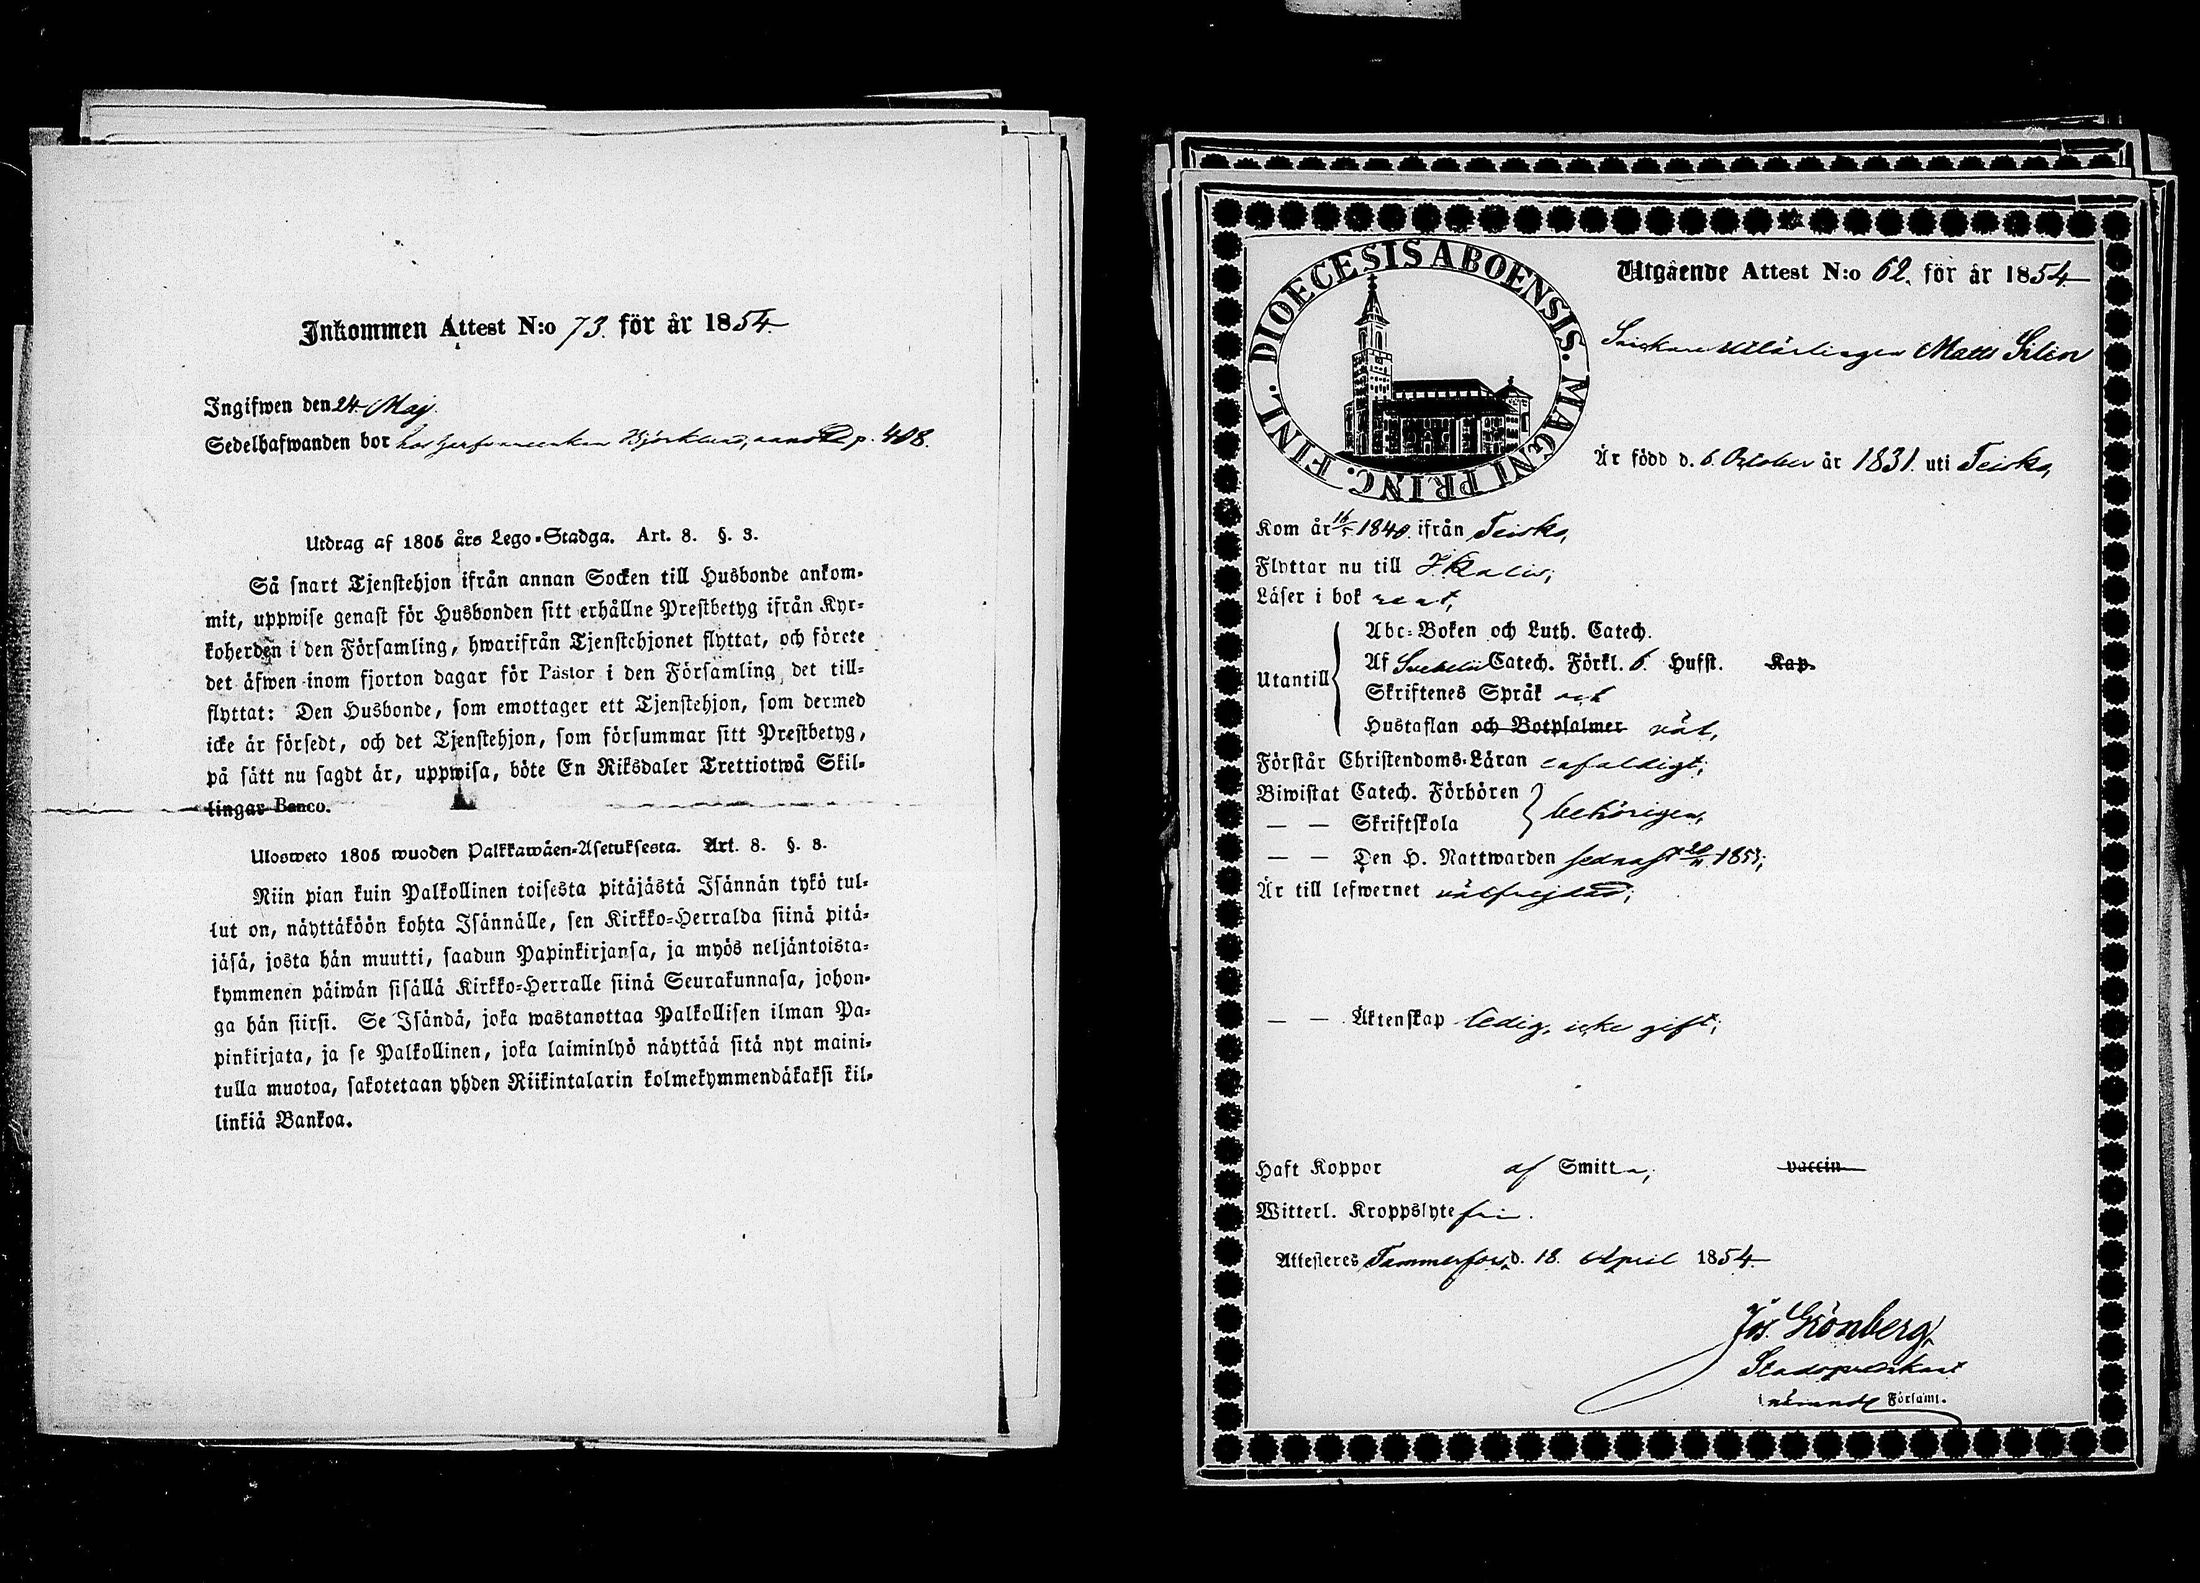 Inkommen Attest N:o 73. för år 1854
Ingifwen den 24 Maj.
Sedelhafwanden bor hos Björklund, p. 408.
Utdrag af 1805 års Lego-Stadga. Art. 8. §. 3.
Så snart Tjenstehjon ifrån annan Socken till Husbonde ankom-
mit, uppwise genast för Husbonden sitt erhållne Prestbetyg ifrån Kyr-
koherden i den Församling, hwarifrån Tjenstehjonet flyttat, och förete
det äfwen inom fjorton dagar för Pastor i den Församling det till-
flyttat: Den Husbonde, som emottager ett Tjenstehjon, som dermed
icke är försedt, och det Tjenstehjon, som försummar sitt Prestbetyg,
på sätt nu sagdt är, uppwisa, böte En Riksdaler Trettiotwå Skil-
lingar Banco.
Ulosweto 1805 wuoden Palkkawäen-Asetuksesta. Art. 8. §. 3.
Niin pian kuin Palkollinen toisesta pitäjästä Isännän tykö tul-
lut on, näyttäköön kohta Isännälle, sen Kirkko-Herralda siinä pitä-
jäsä, josta hän muutti, saadun Papinkirjansa, ja myös neljäntoista-
kymmenen päiwän sisällä Kirkko-Herralle siinä Seurakunnasa, johon-
ga hän siirsi. Se Isändä, joka wastanottaa Palkollisen ilman Pa-
pinkirjata, ja se Palkollinen, joka laiminlyö näyttää sitä nyt maini-
tulla muotoa, sakotetaan yhden Riikintalarin kolmekymmendäkaksi kil-
linkiä Bankoa.
DIOECESIS ABOENSIS. MAGNI PRINC. FINL.
Utgående Attest N:o 62. för år 1854
Matts Silén
Är född d. 6. October år 1831. uti Teisko,
Kom år 16/5 1840. ifrån Teisko,
Flyttar nu till Ikalis,
Läser i bok rent,
Utantill
Abc-Boken och Luth. Catech.
Af Svebelii Catech. Förkl. 6. Hufst. Kap.
Skriftenes Språk och
Hustaflan och Botpsalmer nöt,
Förstår Christendoms-Läran enfaldigt;
Biwistat Catech. Förhören
— — Skriftskola behörigen,
— — Den H. Nattwarden sednast 20/11 1853;
Är till lefwernet välfrejdad;
— — Äktenskap ledig, icke gift;
Haft Koppor af Smitta, vaccin
Witterl. Kroppslyte fri.
Attesteres Tammerfors, d. 18. April 1854
Jos. Grönberg,
Stadspredikant
i nämnde Församl.